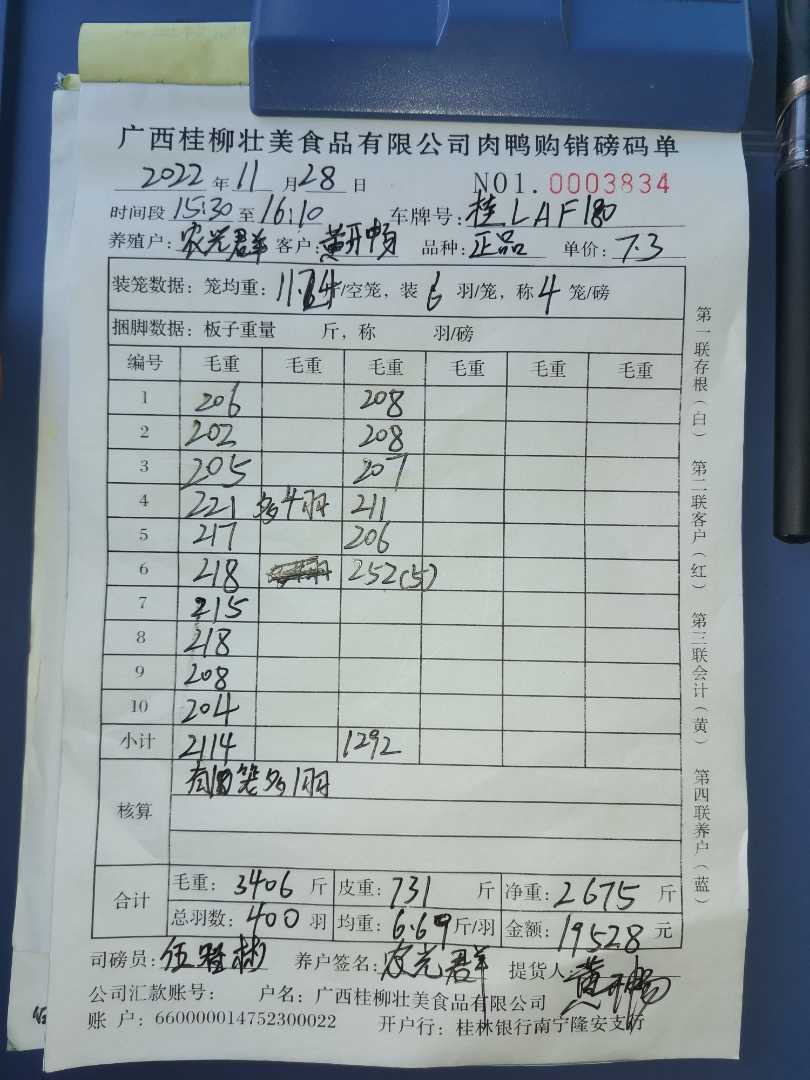 广西桂柳壮美食品有限公司肉鸭购销磅码单
2022 年 11 月 28 日 NO1.0003834
时间段 15:30 至 16:10 车牌号: 桂LAF180
养殖户: 农光群 客户: 黄开畅 品种: 正品 单价: 7.3
装笼数据: 笼均重: /空笼, 装 6 羽/笼, 称 4 笼/磅
捆脚数据: 板子重量 斤, 称 羽/磅
编号 毛重 毛重 毛重 毛重 毛重 毛重
1 206 208
2 202 208
3 205 207
4 221 多4羽 211
5 217 206
6 218 252(5)
7 215
8 218
9 208
10 204
小计 2114 1292
核算 有 笼多1羽
合计 毛重: 3406 斤 皮重: 731 斤 净重: 2675 斤
总羽数: 400 羽 均重: 6.69 斤/羽 金额: 19528 元
司磅员: 伍 彬 养户签名: 农光群 提货人: 黄开畅
公司汇款账号: 户名: 广西桂柳壮美食品有限公司
账 户: 660000014752300022 开户行: 桂林银行南宁隆安支行
第一联存根(白) 第二联客户(红) 第三联会计(黄) 第四联养户(蓝)